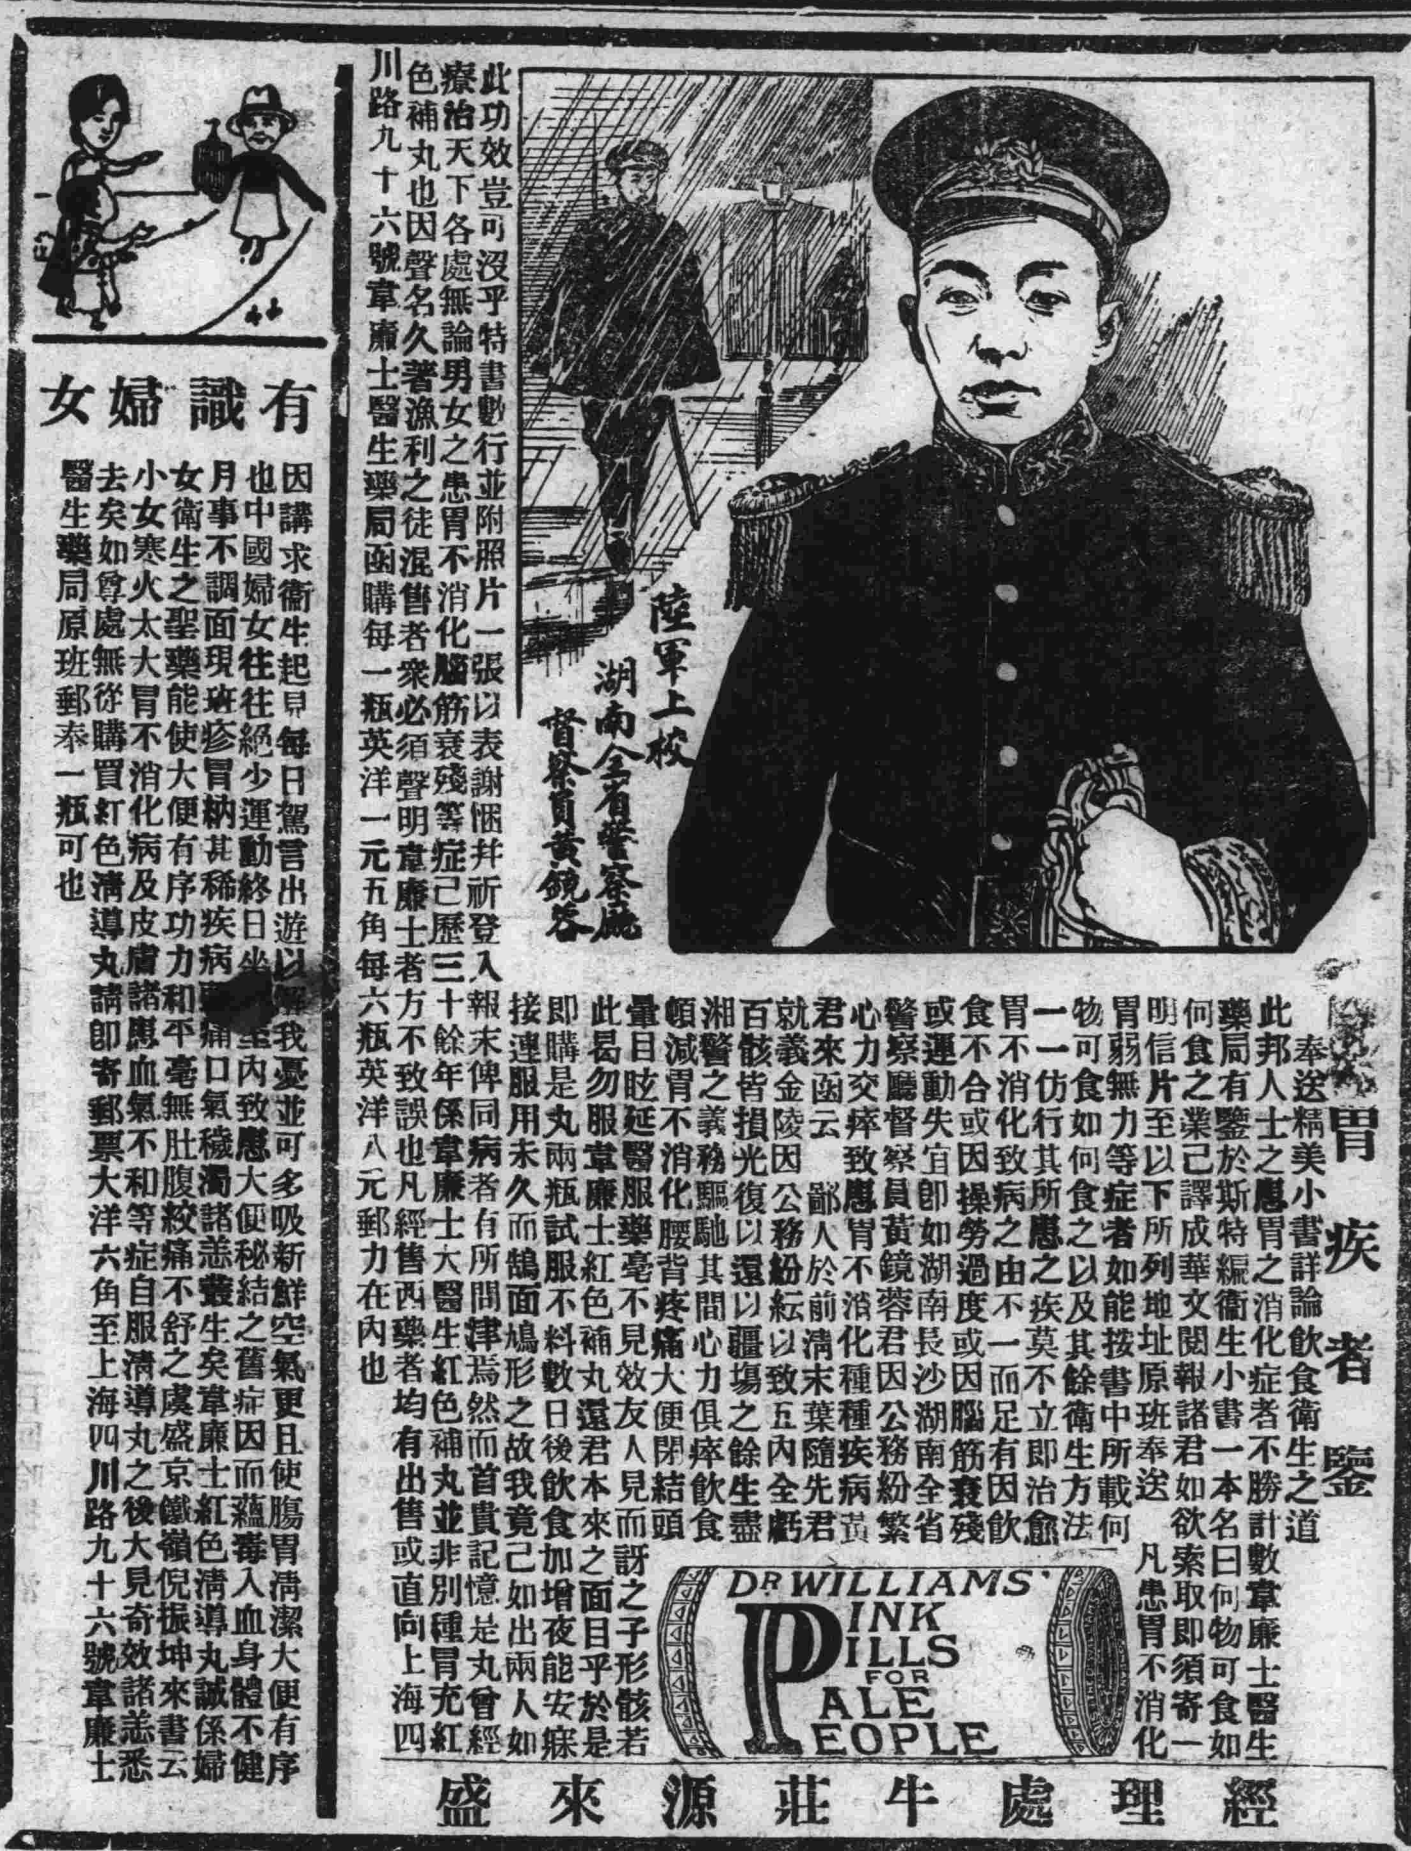 胃疾者鑒
奉送精美小書詳論飲食衛生之道
此邦人士之患胃之消化症者不勝計數韋廉士醫生
藥局有鑒於斯特編衛生小書一本名曰何物可食如
何食之業已譯成華文閱報諸君如欲索取即須寄一
明信片至以下所列地址原班奉送 凡患胃不消化
胃弱無力等症者如能按書中所載何
物可食如何食之以及其餘衛生方法
一一仿行其所患之疾莫不立即治愈
胃不消化致病之由不一而足有因飲
食不合或因操勞過度或因腦筋衰殘
或運動失宜即如湖南長沙湖南全省
警察廳督察員黃鏡蓉君因公務紛繁
心力交瘁致患胃不消化種種疾病黃
君來函云 鄙人於前清末葉隨先君
就義金陵因公務紛紜以致五內全虧
百骸皆損光復以還以疆場之餘生盡
湘警之義務驅馳其間心力俱瘁飲食
頓減胃不消化腰背疼痛大便閉結頭
暈目眩延醫服藥毫不見效友人見而訝之子形骸若
此曷勿服韋廉士紅色補丸還君本來之面目乎於是
即購是丸兩瓶試服不料數日後飲食加增夜能安寐
接連服用未久而鵠面鳩形之故我竟已如出兩人如
此功效豈可沒乎特書數行並附照片一張以表謝悃并祈登入報末俾同病者有所問津焉然而首貴記憶是丸曾經
療治天下各處無論男女之患胃不消化腦筋衰殘等症已歷三十餘年係韋廉士大醫生紅色補丸並非別種冒充紅
色補丸也因聲名久著漁利之徒混售者衆必須聲明韋廉士者方不致誤也凡經售西藥者均有出售或直向上海四
川路九十六號韋廉士醫生藥局函購每一瓶英洋一元五角每六瓶英洋八元郵力在內也
陸軍上校
湖南全省警察廳
督察員黃鏡蓉
DR WILLIAMS'
PINK
PILLS
FOR
PALE
PEOPLE
經理處牛莊源來盛
有識婦女
因講求衛生起見每日駕言出遊以解我憂並可多吸新鮮空氣更且使腸胃清潔大便有序
也中國婦女往往絕少運動終日坐 室內致患大便秘結之舊症因而蘊毒入血身體不健
月事不調面現斑疹胃納甚稀疾病 痛口氣穢濁諸恙叢生矣韋廉士紅色清導丸誠係婦
女衛生之聖藥能使大便有序功力和平毫無肚腹絞痛不舒之虞盛京鐵嶺倪振坤來書云
小女寒火太大胃不消化病及皮膚諸患血氣不和等症自服清導丸之後大見奇效諸恙悉
去矣如尊處無從購買紅色清導丸請即寄郵票大洋六角至上海四川路九十六號韋廉士
醫生藥局原班郵奉一瓶可也